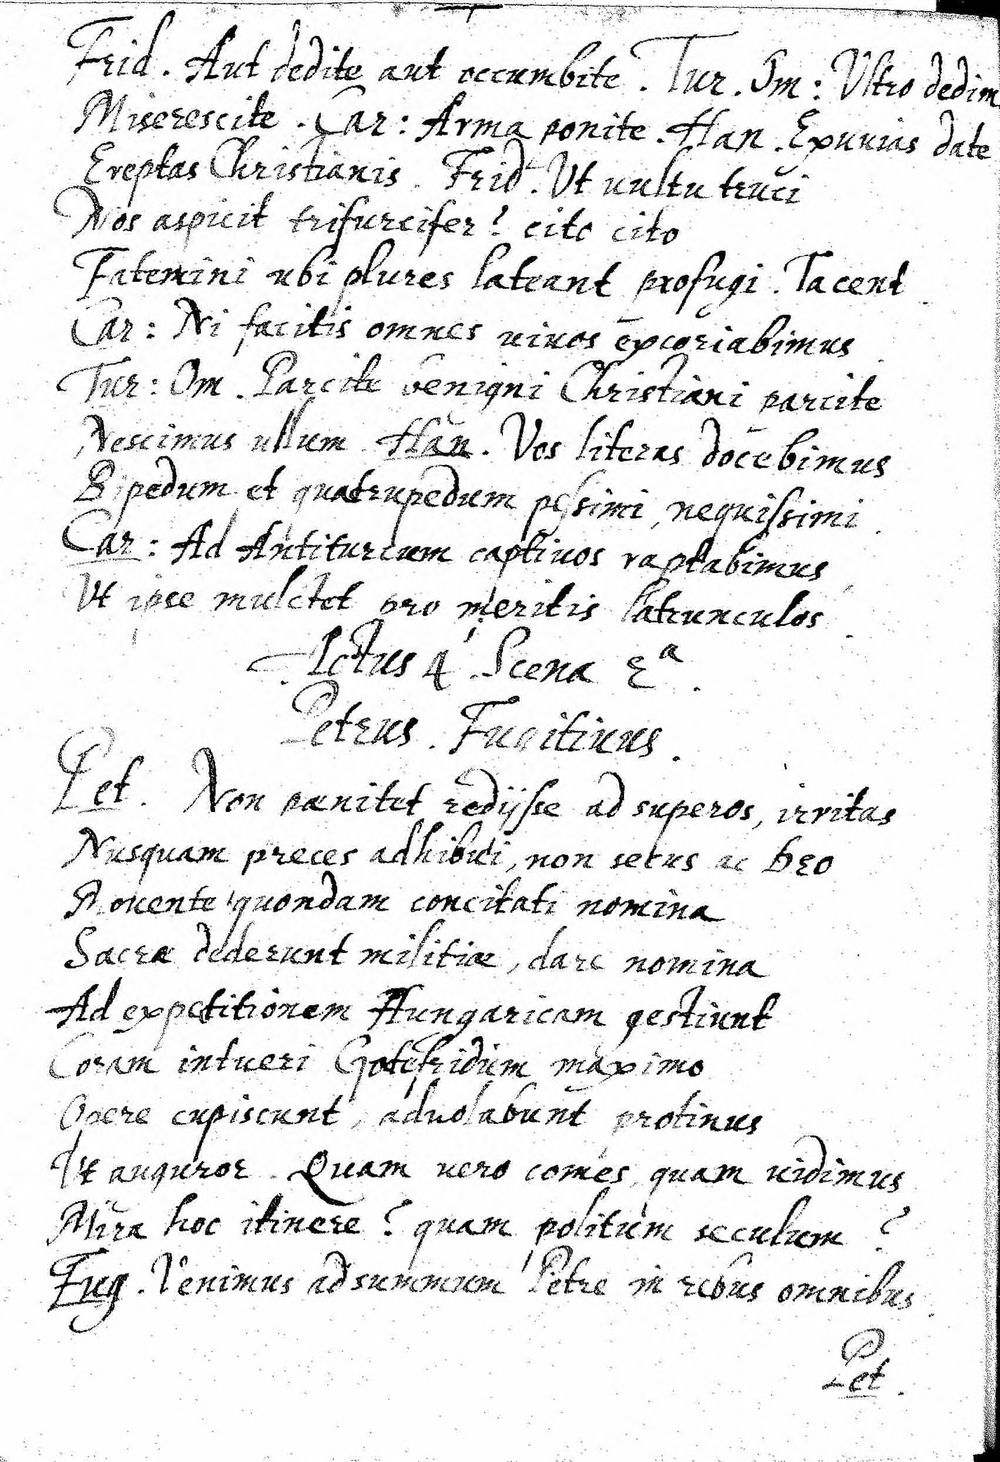 Frid. Aut dedite aut occumbite. Tur. Om: Ultro dedim
Miserescite. Car: Arma ponite. Han. Exuuias date
Ereptas Christianis. Frid. Ut uultu truci
Nos aspicit trifurcifer? cito cito
Fatemini ubi plures lateant profugi. Tacent.
Car: Ni facitis omnes uiuos excoriabimus
Tur: Om. Parcite benigni Christiani parcite
Nescimus ullum. Han. Vos literas docebimus
Bipedum et quatrupedum pessimi, nequissimi.
Car: Ad Antiturcum captiuos raptabimus
Ut ipse mulctet pro meritis latrunculos.
Actus 4. Scena 2a.
Petrus. Fugitiuus.
Pet. Non pænitet redijsse ad superos, irritas
Nusquam preces adhibui, non secus ac
Mouente quondam concitati nomina
Sacræ dederunt militiæ, dare nomina
Ad expetitionem Hungaricam gestiunt
Coram intueri Gotefridum maximo
Opere cupiscunt, aduolabunt protinus
Ut auguror. Quam uero comes, quam uidimus
Mira hoc itinere? quam politum seculum?
Fug. Venimus ad summum Petre in rebus omnibus.
Pet.